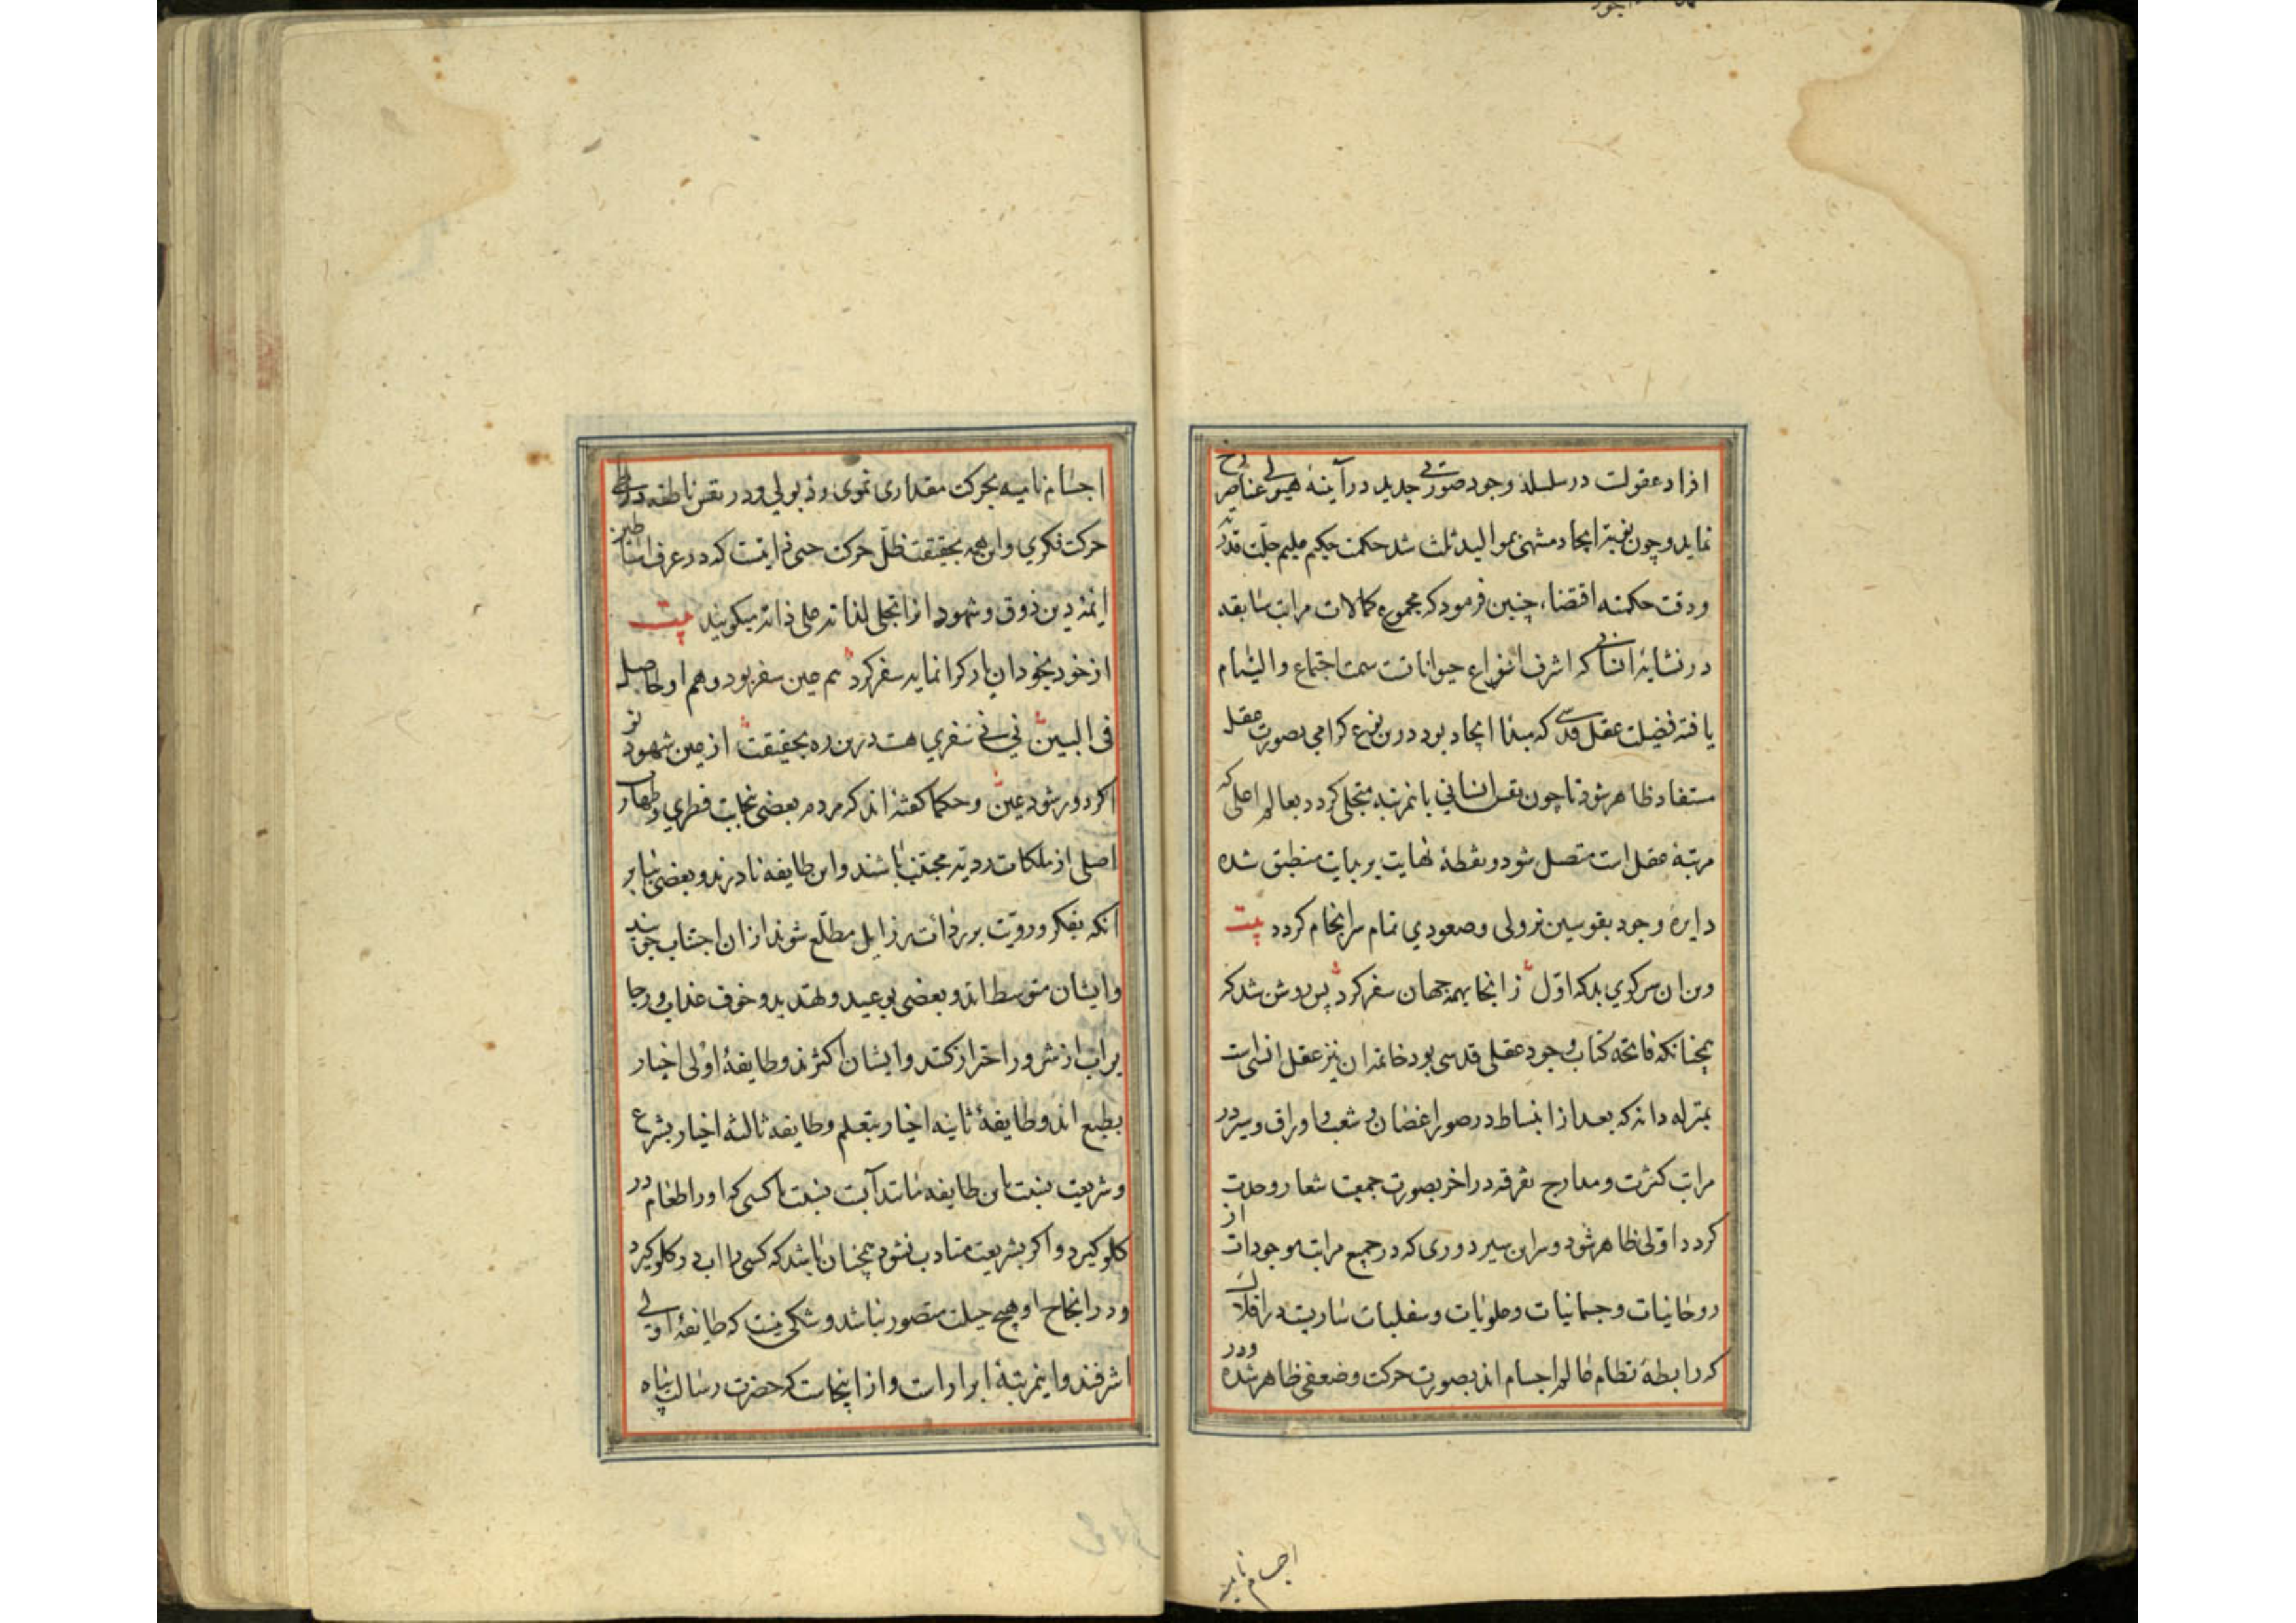 افراد عقولت در سلسلۀ وجود صورتی جدید در آینۀ هیولی عناصر رخ
نماید و چون نوبت ایجاد منتهی بموالید ثلث شد حکمت حکیم علیم جلت قدرته
ودقت حکمته اقتضاء چنین فرمود که مجموع کمالات مراتب سابقه
در نشاۀ انسانی که اشرف انواع حیواناتست سمت اجتماع والتیام
یافته فضیلت عقل قدسی که مبدا ایجاد بود درین نوع کرامی بصورت عقل
مستفاد ظاهر شود تا چون نفس انسانی بانمرتبه متجلی کردد بعالم اعلی که
مرتبۀ عقل است متصل شود و نقطۀ نهایت بر بدایت منطبق شده
دایرۀ وجود بقوسین نزولی وصعودی تمام سرانجام کردد بیت
وین ان سر کوی بد که اول زانجا بهمه جهان سفر کرد پس روشن شد که
همچنانکه فاتحۀ کتاب وجود عقلی قدسی بود خاتمۀ ان نیز عقل انسی است
بمنزله دانه که بعد از انبساط در صور اغصان و شعب و اوراق وسیر در
مراتب کثرت ومدارج تفرقه در اخر بصورت جمعیت شعار وحدت
کردد اولی ظاهر شود و سر این سیر دوری که در جمیع مراتب موجودات از
روحانیات وجسمانیات وعلویات وسفلیات ساریست در افلاک
که رابطۀ نظام عالم اجسام اند بصورت حرکت وضعی ظاهر شده ودر
اجسام نامیه
اجسام نامیه بحرکت مقداری نموی وذبولی ودر نفس ناطقه در طی
حرکت فکری واین همه بحقیقت ظل حرکت حبی ذاتیست که در عرف اساطین
ایمۀ دین ذوق وشهود ازا تجلی لذاته علی ذاته میکویند بیت
از خود بخود ان یار کرا نماید سفر کرد هم عین سفر بود وهم او لحاصله
فی البین نی نی سفری هست درین ره بحقیقت از عین شهود تو
اکر دور شود عین وحکما کفته اند که مردم بعضی بنجابت فطری وطهارت
اصلی از ملکات ردیه مجتنب باشند واین طایفه نادرند وبعضی بنابر
انکه بفکر ورویت بر رذائت رذایل مطلع شوند ازان اجتناب جویند
وایشان متوسط اند وبعضی بوعید وتهدید وخوف عذاب ورجا
براب از شرور احتراز کنند وایشان اکثرند وطایفۀ اولی اخیار
بطبع اند وطایفۀ ثانیه اخیار بتعلم وطایفه ثالثه اخیار بشرع
وشریعت بنسبت این طایفه مانند آبست بنسبت باکسی که اورا طعام در
کلو کیرد واکر بشریعت متادب نشود همچنان باشد که کسی را اب در کلو کیرد
ودر انجاح او هیچ حیلت متصور نباشد وشکی نیست که طایفۀ اولی
اشرفند واینمرتبۀ ابرار است واز اینجاست که حضرت رسالت پناه